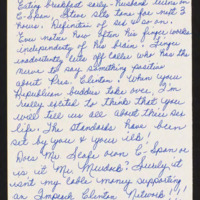 Eating breakfast early - Husband tunes in
C-Span, listens also tunes for next 3
hours. Repeater of sad season.
Ever notice how often his finger works
independently of his brain. Finger
inadvertently cuts off caller who has the
nerve to say something positive
about Mrs. Clinton. When you
Republican buddies take over, I'm
really elated to think that you
will tell us all about their sex
life. The standards have been
set by you & your ilk!
Does Mr. Scaife own C-Span or
is it Mr. Murdock? Surely it
isn't my cable money supporting
an Impeach Clinton Network!!